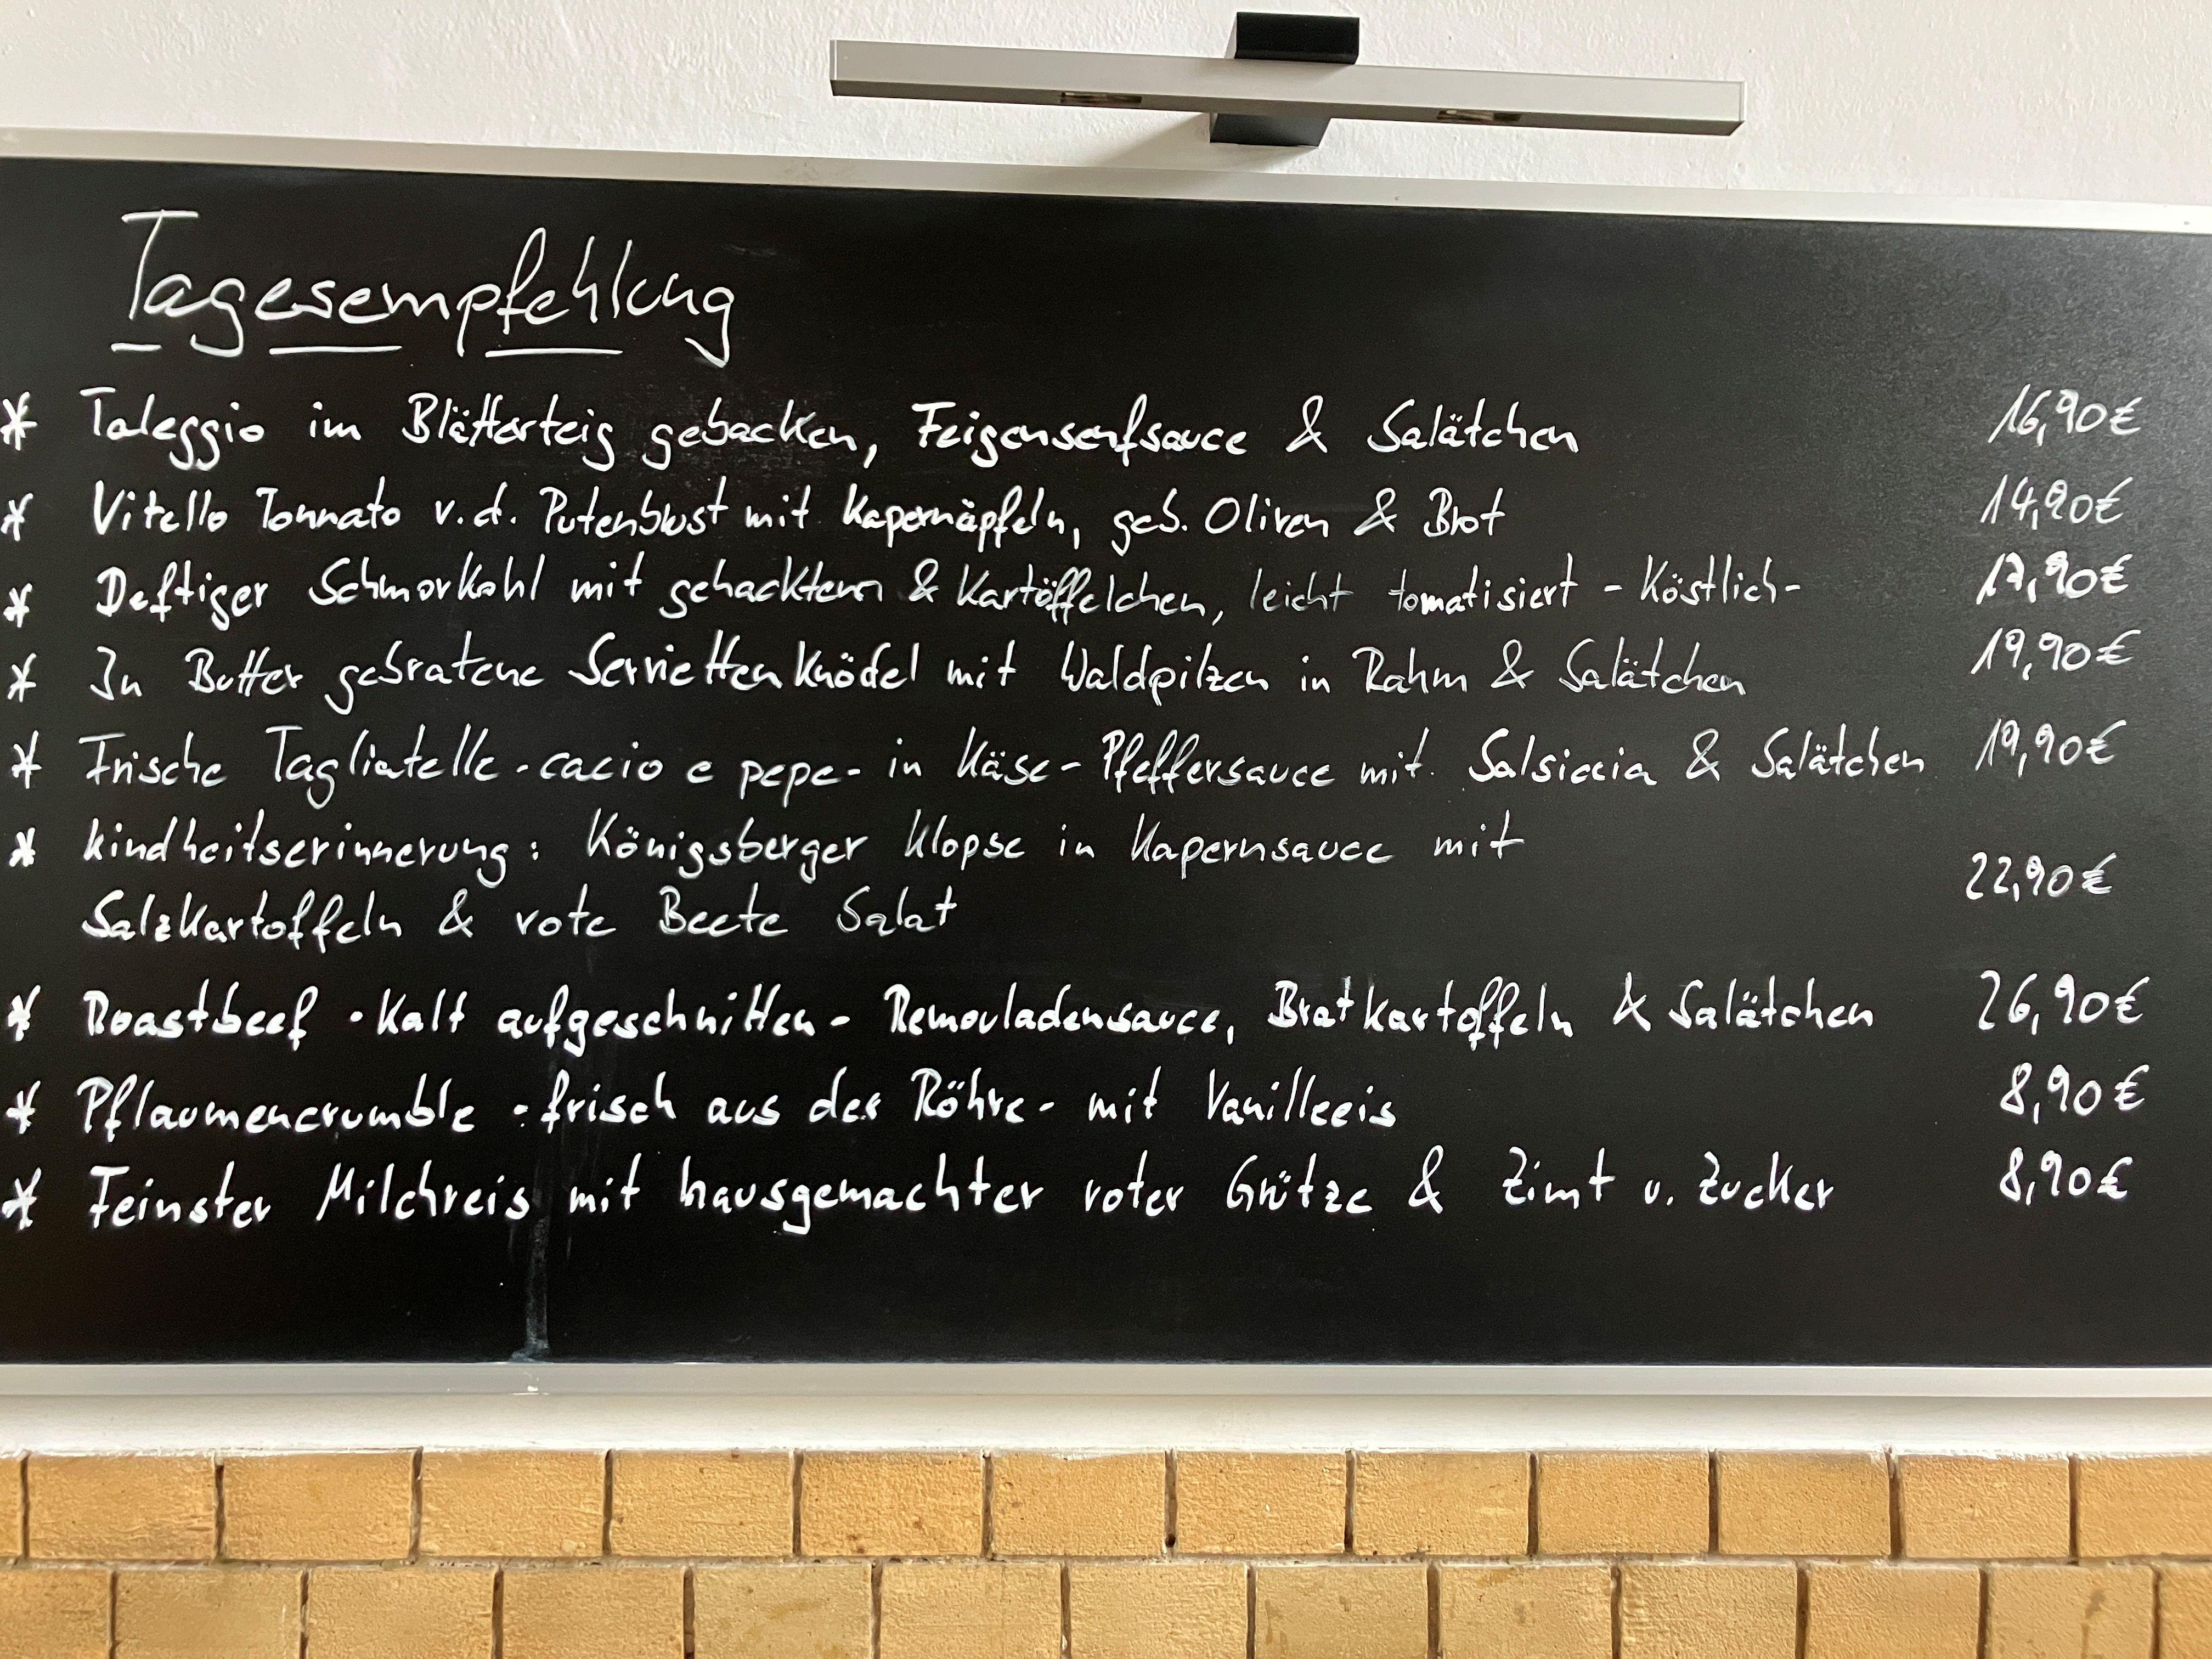 Tagesempfehlung
* Taleggio im Blätterteig gebacken, Feigensenfsauce & Salätchen 16,90€
* Vitello Tonnato v.d. Putenbrust mit Kapernäpfeln, geb. Oliven & Brot 14,90€
* Deftiger Schmorkohl mit gehacktem & Kartöffelchen, leicht tomatisiert - Köstlich - 17,90€
* In Butter gebratene Serviettenknödel mit Waldpilzen in Rahm & Salätchen 19,90€
* Frische Tagliatelle - cacio e pepe - in Käse-Pfeffersauce mit Salsiccia & Salätchen 19,90€
* Kindheitserinnerung: Königsberger Klopse in Kapernsauce mit
Salzkartoffeln & rote Beete Salat 22,90€
* Roastbeef - Kalt aufgeschnitten - Remouladensauce, Bratkartoffeln & Salätchen 26,90€
* Pflaumencrumble - frisch aus der Röhre - mit Vanilleeis 8,90€
* Feinster Milchreis mit hausgemachter roter Grütze & Zimt u. Zucker 8,90€